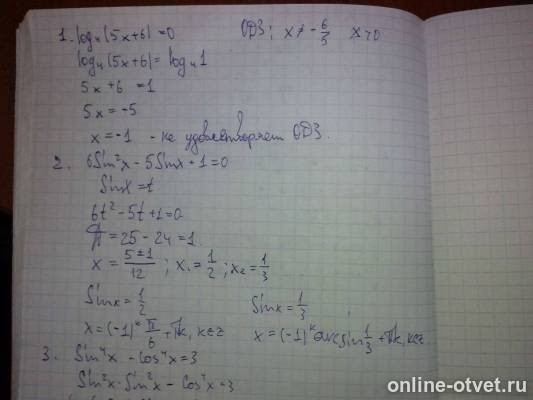 1. log₄(5x+6)=0 ОДЗ; x>-6/5 x>0
log₄(5x+6)=log₄1
5x+6=1
5x=-5
x=-1 - не удовлетворяет ОДЗ.
2. 6Sin²x-5Sinx+1=0
Sinx=t
6t²-5t+1=0
Д=25-24=1
x=5±1/12; x₁=1/2; x₂=1/3
Sinx=1/2 Sinx=1/3;
x=(-1)ᵏ π/6+πk, k∈z x=(-1)ᵏ arcsin 1/3+πk, k∈z
3. Sin⁴x-cos⁴x=3
Sin²x·Sin²x-cos⁴x=3
online-otvet.ru